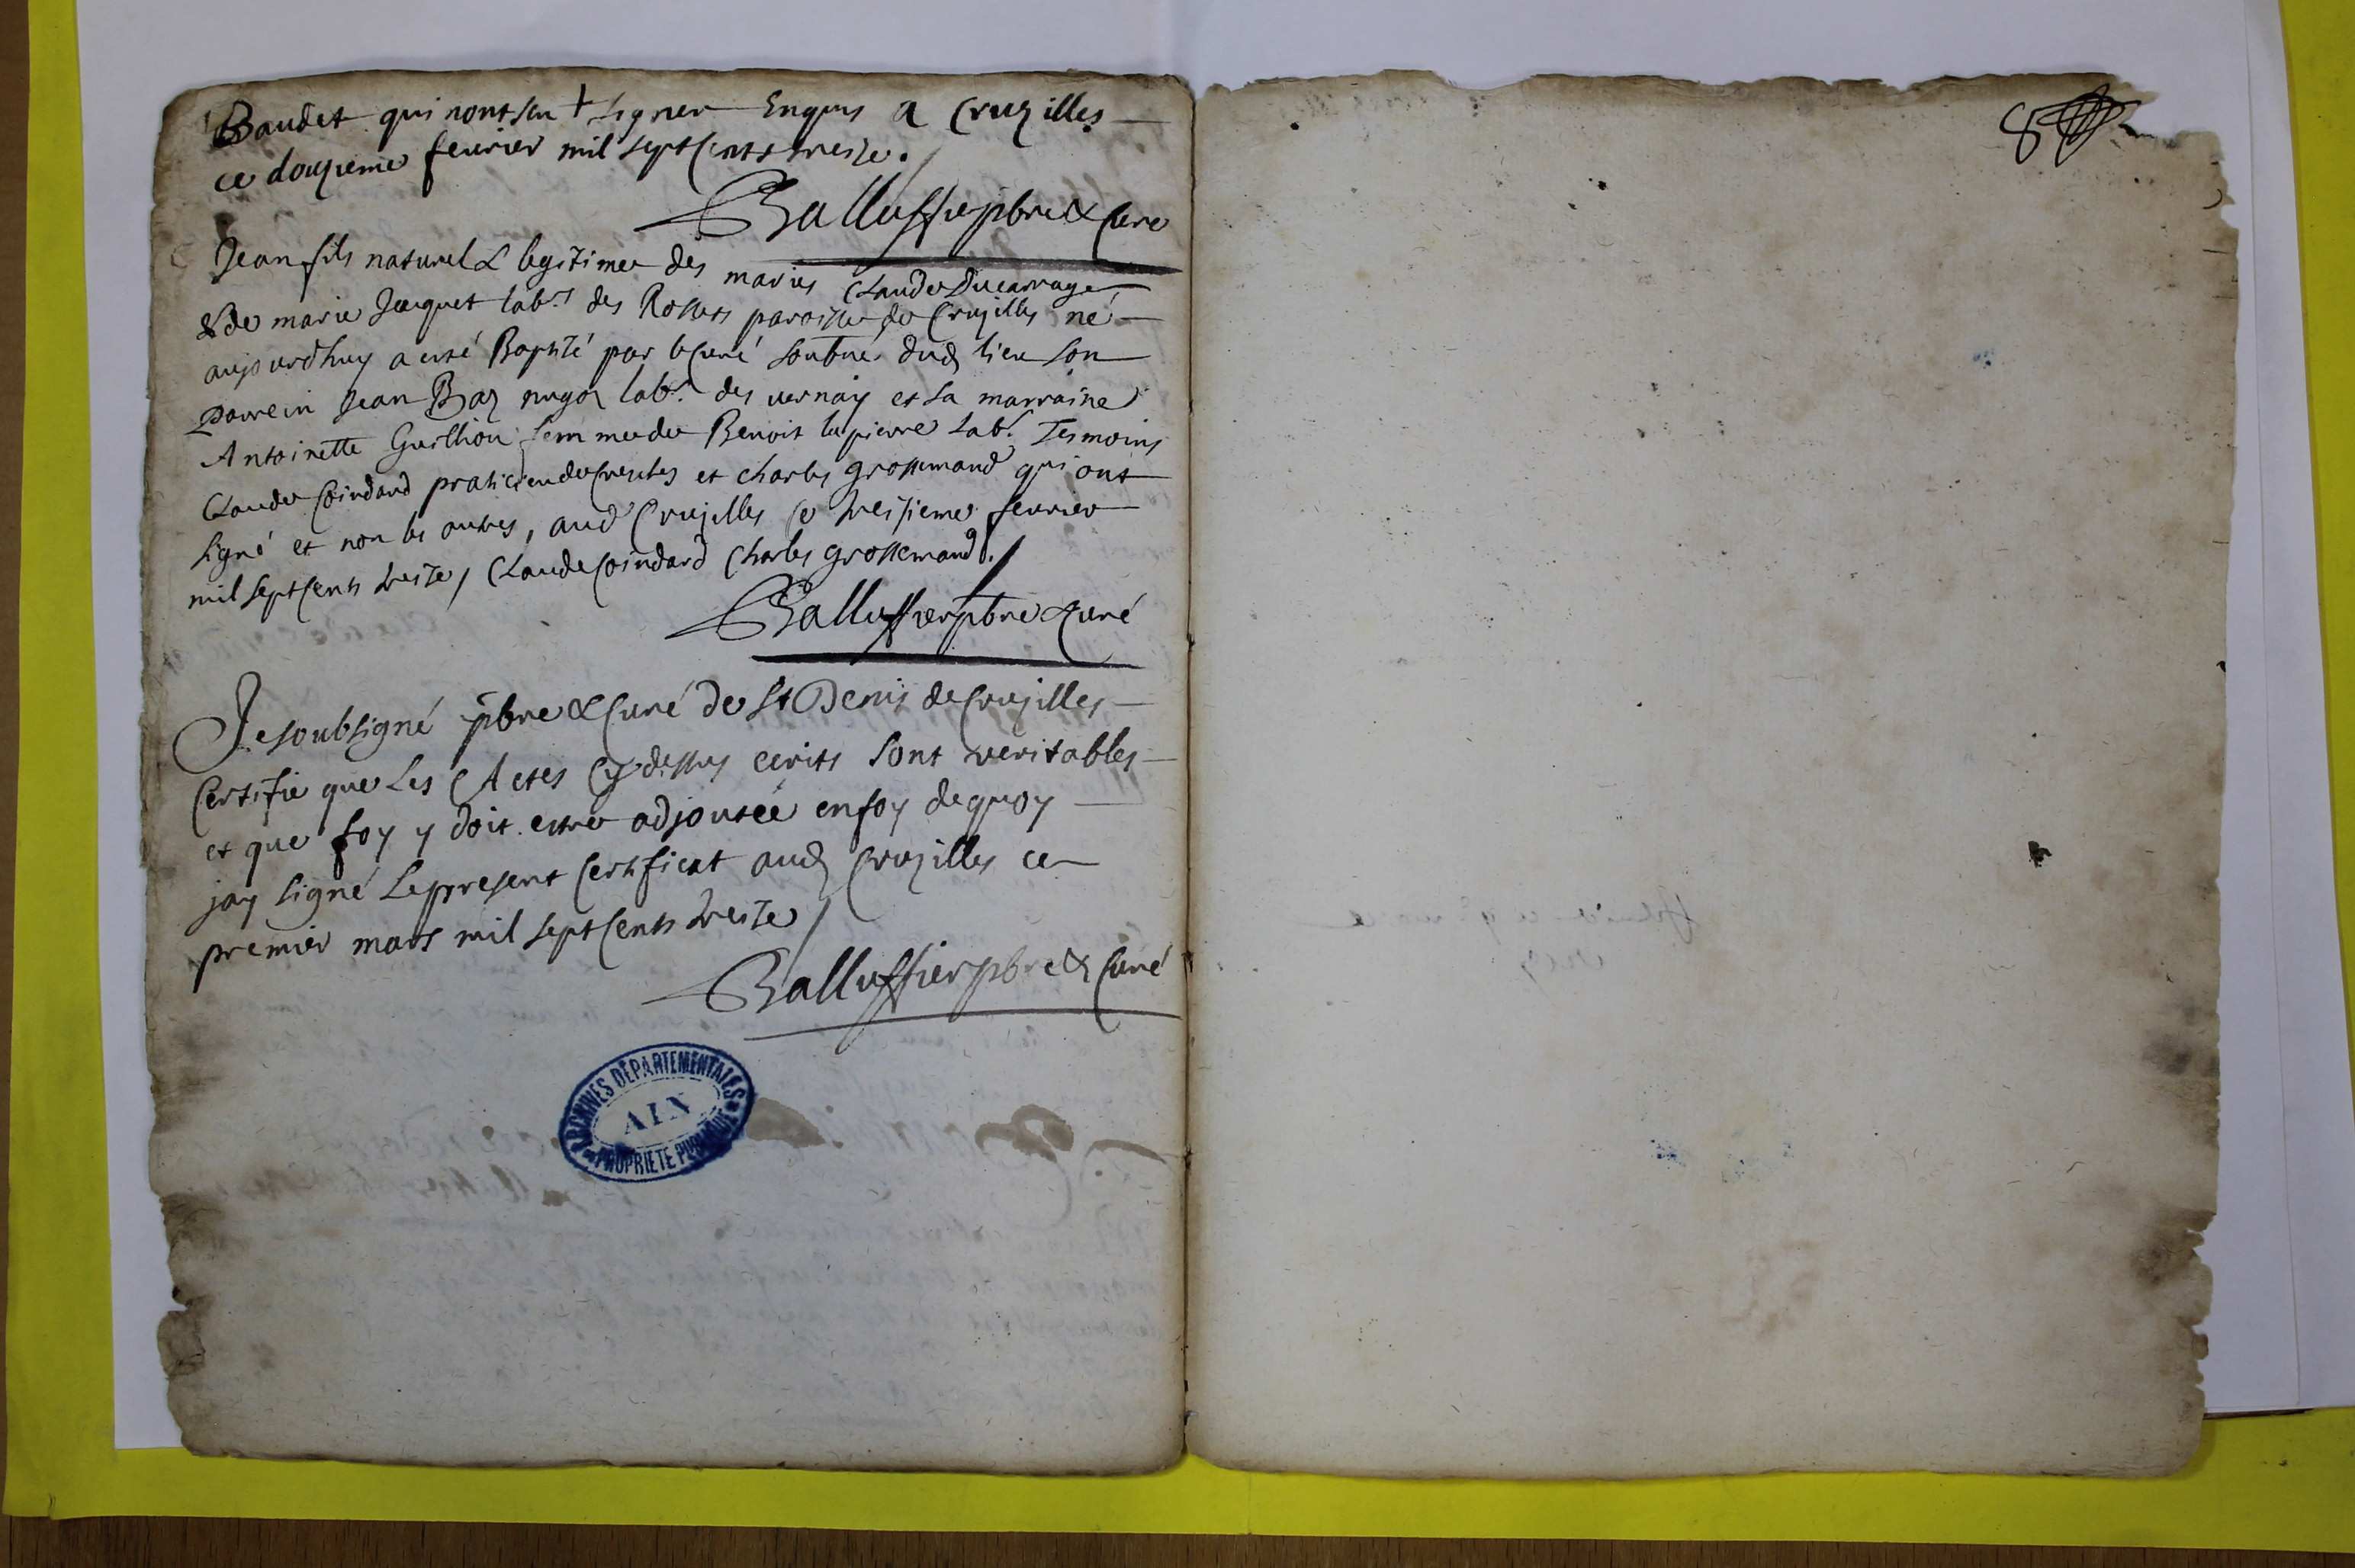 Baudet qui nont sceu + signer Enquis a Cruzilles
ce douzieme feurier mil sept cents treize ./
Balluffier pbre & Curé
Jean fils naturel & legitime des maries Claude Ducarruge
& de marie Jacquet lab.rs des Rosses paroisse de Crujilles né
aujourdhuy a esté Baptizé par le Curé soubné dud lieu son
parrein Jean Baz lab.r des uernay et sa marraine
Antoinette Guillion femme de Benoit lapierre lab.r Tesmoins
Claude Coindard praticien de et charles grossemand qui ont
signé et non les autres, aud Crujilles ce treizieme feurier
mil sept cents treize / Claude Coindard Charles grossemand ./
Balluffier pbre & Curé
Je soubsigné pbre & Curé de St Denis de Crujilles
Certifie que Les Actes Cy dessus ecrits sont veritables
et que foy y doit estre adjoutée en foy de quoy
jay signé Le present Certificat aud Cruzilles ce
premier mars mil sept cents treize /
Balluffier pbre & Curé
ARCHIVES DÉPARTEMENTALES
AIN
PROPRIÉTÉ PUBLIQUE
8